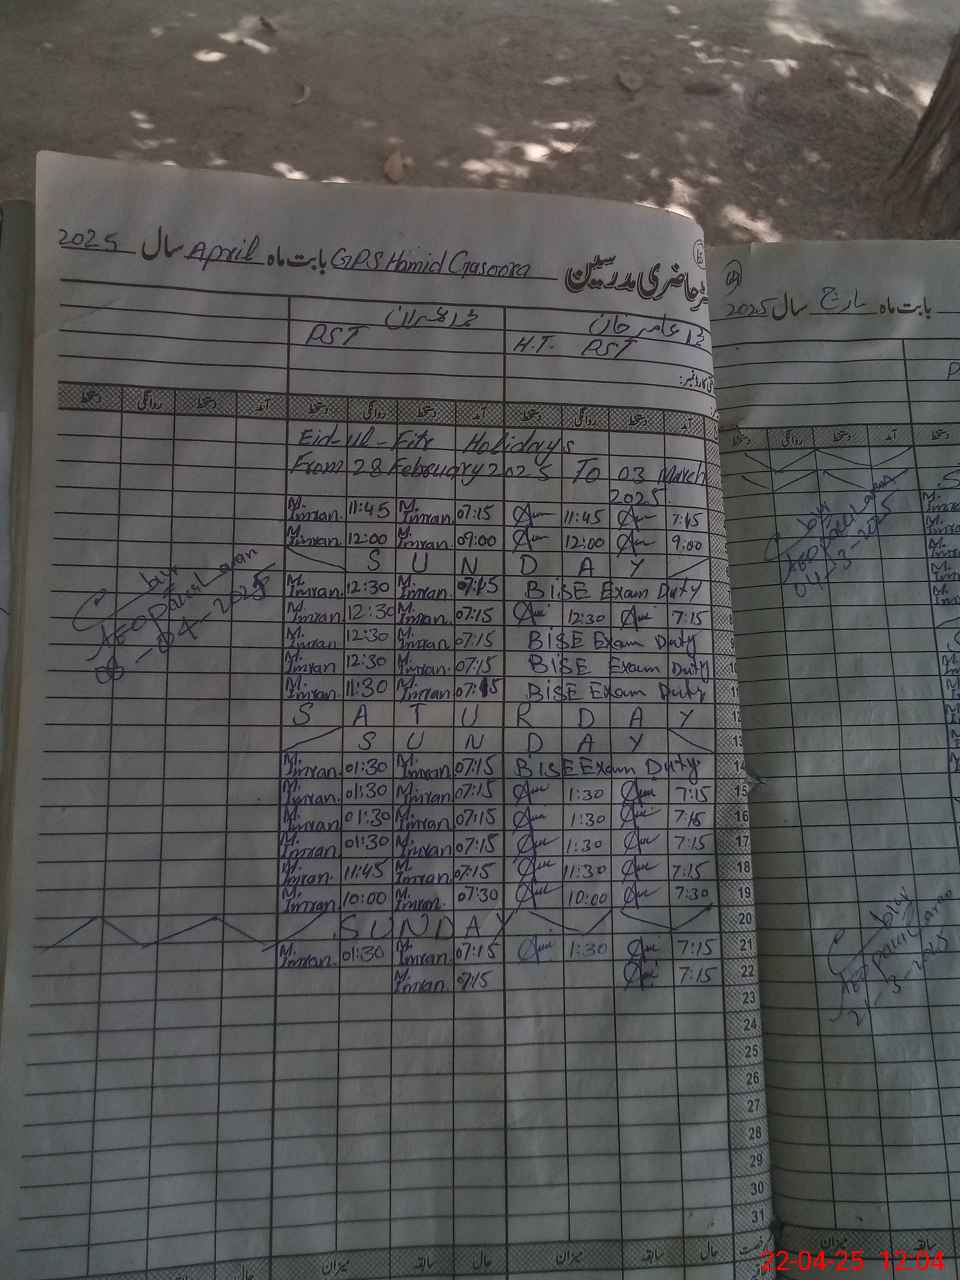 رجسٹر حاضری مدرسین GPS Hamid Gasoora بابت ماہ April سال 2025
محمد عامر خان محمد عمران
H.T. PST PST
دستخط روانگی دستخط آمد دستخط روانگی دستخط آمد دستخط روانگی دستخط آمد
Eid-ul-Fitr Holidays
From 28 February 2025 To 03 March
2025
M. Imran 11:45 M. Imran 07:15 11:45 7:15
M. Imran 12:00 M. Imran 09:00 12:00 9:00
SUNDAY
M. Imran 12:30 M. Imran 07:15 BISE Exam Duty
M. Imran 12:30 M. Imran 07:15 12:30 7:15
M. Imran 12:30 M. Imran 07:15 BISE Exam Duty
M. Imran 12:30 M. Imran 07:15 BISE Exam Duty 10
M. Imran 11:30 M. Imran 07:15 BISE Exam Duty 11
SATURDAY 12
SUNDAY 13
M. Imran 01:30 M. Imran 07:15 BISE Exam Duty 14
M. Imran 01:30 M. Imran 07:15 1:30 7:15 15
M. Imran 01:30 M. Imran 07:15 1:30 7:15 16
M. Imran 01:30 M. Imran 07:15 1:30 7:15 17
M. Imran 11:45 M. Imran 07:15 11:30 7:15 18
M. Imran 10:00 M. Imran 07:30 10:00 7:30 19
SUNDAY 20
M. Imran 01:30 M. Imran 07:15 1:30 7:15 21
M. Imran 07:15 7:15 22
23
24
25
26
27
28
29
30
31
رخصت حال سابقہ میزان حال سابقہ میزان
04-2025
بابت ماہ مارچ سال 2025
دستخط روانگی دستخط آمد دستخط
04-3-2025
3-2025
میزان سابقہ
22-04-25 12:04